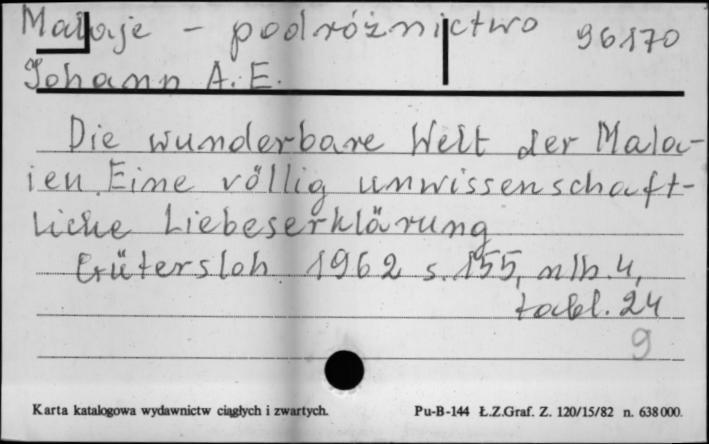 Malaje - podróżnictwo 96170
Johann A. E.
Die wunderbare Welt der Mala-
ien. Eine völlig unwissenschaft-
liche Liebeserklärung
Gütersloh 1962 s. 155, nlb. 4,
tabl. 24
9
Karta katalogowa wydawnictw ciągłych i zwartych. Pu-B-144 Ł.Z.Graf. Z. 120/15/82 n. 638000.